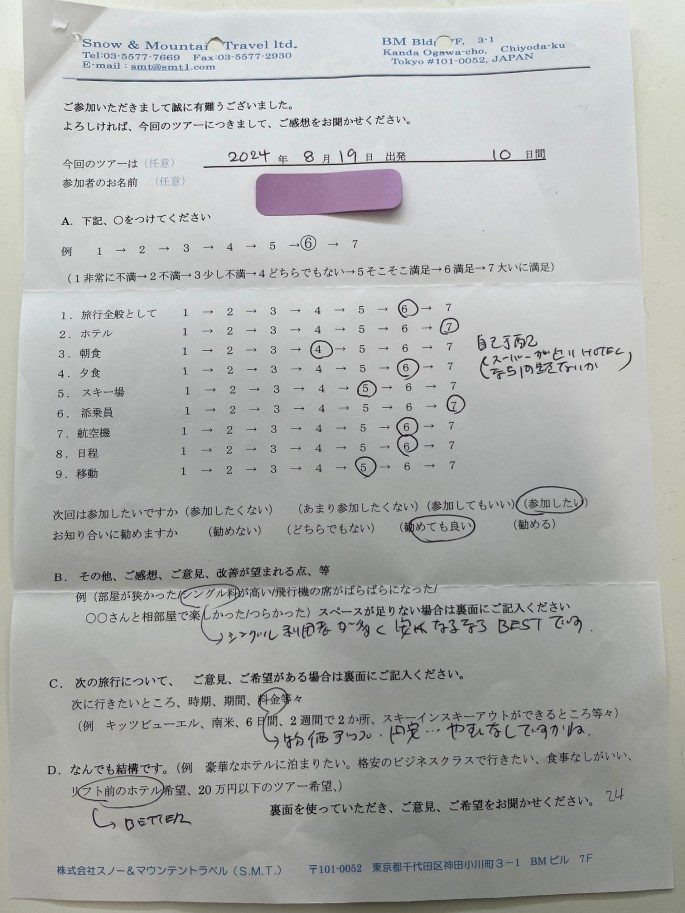 Snow & Mountain Travel ltd.
Tel:03-5577-7669 Fax:03-5577-2930
E-mail : smt@smt1.com
BM Bldg 7F, 3-1
Kanda Ogawa-cho, Chiyoda-ku
Tokyo #101-0052, JAPAN
ご参加いただきまして誠に有難うございました。
よろしければ、今回のツアーにつきまして、ご感想をお聞かせください。
今回のツアーは（任意） 2024 年 8 月 19 日 出発 10 日間
参加者のお名前 （任意）
A. 下記、○をつけてください
例 1 → 2 → 3 → 4 → 5 →⑥ → 7
（1 非常に不満→2 不満→3 少し不満→4 どちらでもない→5 そこそこ満足→6 満足→7 大いに満足）
1. 旅行全般として 1 → 2 → 3 → 4 → 5 → 6 → 7
2. ホテル 1 → 2 → 3 → 4 → 5 → 6 → 7
3. 朝食 1 → 2 → 3 → 4 → 5 → 6 → 7
4. 夕食 1 → 2 → 3 → 4 → 5 → 6 → 7
5. スキー場 1 → 2 → 3 → 4 → 5 → 6 → 7
6. 添乗員 1 → 2 → 3 → 4 → 5 → 6 → 7
7. 航空機 1 → 2 → 3 → 4 → 5 → 6 → 7
8. 日程 1 → 2 → 3 → 4 → 5 → 6 → 7
9. 移動 1 → 2 → 3 → 4 → 5 → 6 → 7
自己手配
(スーパーが近い HOTEL
なら問題ないか)
次回は参加したいですか（参加したくない） （あまり参加したくない）（参加してもいい）（参加したい）
お知り合いに勧めますか （勧めない） （どちらでもない） （勧めても良い） （勧める）
B. その他、ご感想、ご意見、改善が望まれる点、等
例（部屋が狭かった/シングル料が高い/飛行機の席がばらばらになった/
○○さんと相部屋で楽しかった/つらかった）スペースが足りない場合は裏面にご記入ください
→シングル利用者が多く安くなるなら BESTです.
C. 次の旅行について、 ご意見、ご希望がある場合は裏面にご記入ください。
次に行きたいところ、時期、期間、料金等々
（例 キッツビューエル、南米、6日間、2週間で2か所、スキーインスキーアウトができるところ等々）
→物価アップ・円安…やむなしですかね.
D. なんでも結構です。（例 豪華なホテルに泊まりたい。格安のビジネスクラスで行きたい、食事なしがいい、
リフト前のホテル希望、20万円以下のツアー希望、）
→ BETTER
裏面を使っていただき、ご意見、ご希望をお聞かせください。 24
株式会社スノー＆マウンテントラベル（S.M.T.） 〒101-0052 東京都千代田区神田小川町3-1 BMビル 7F